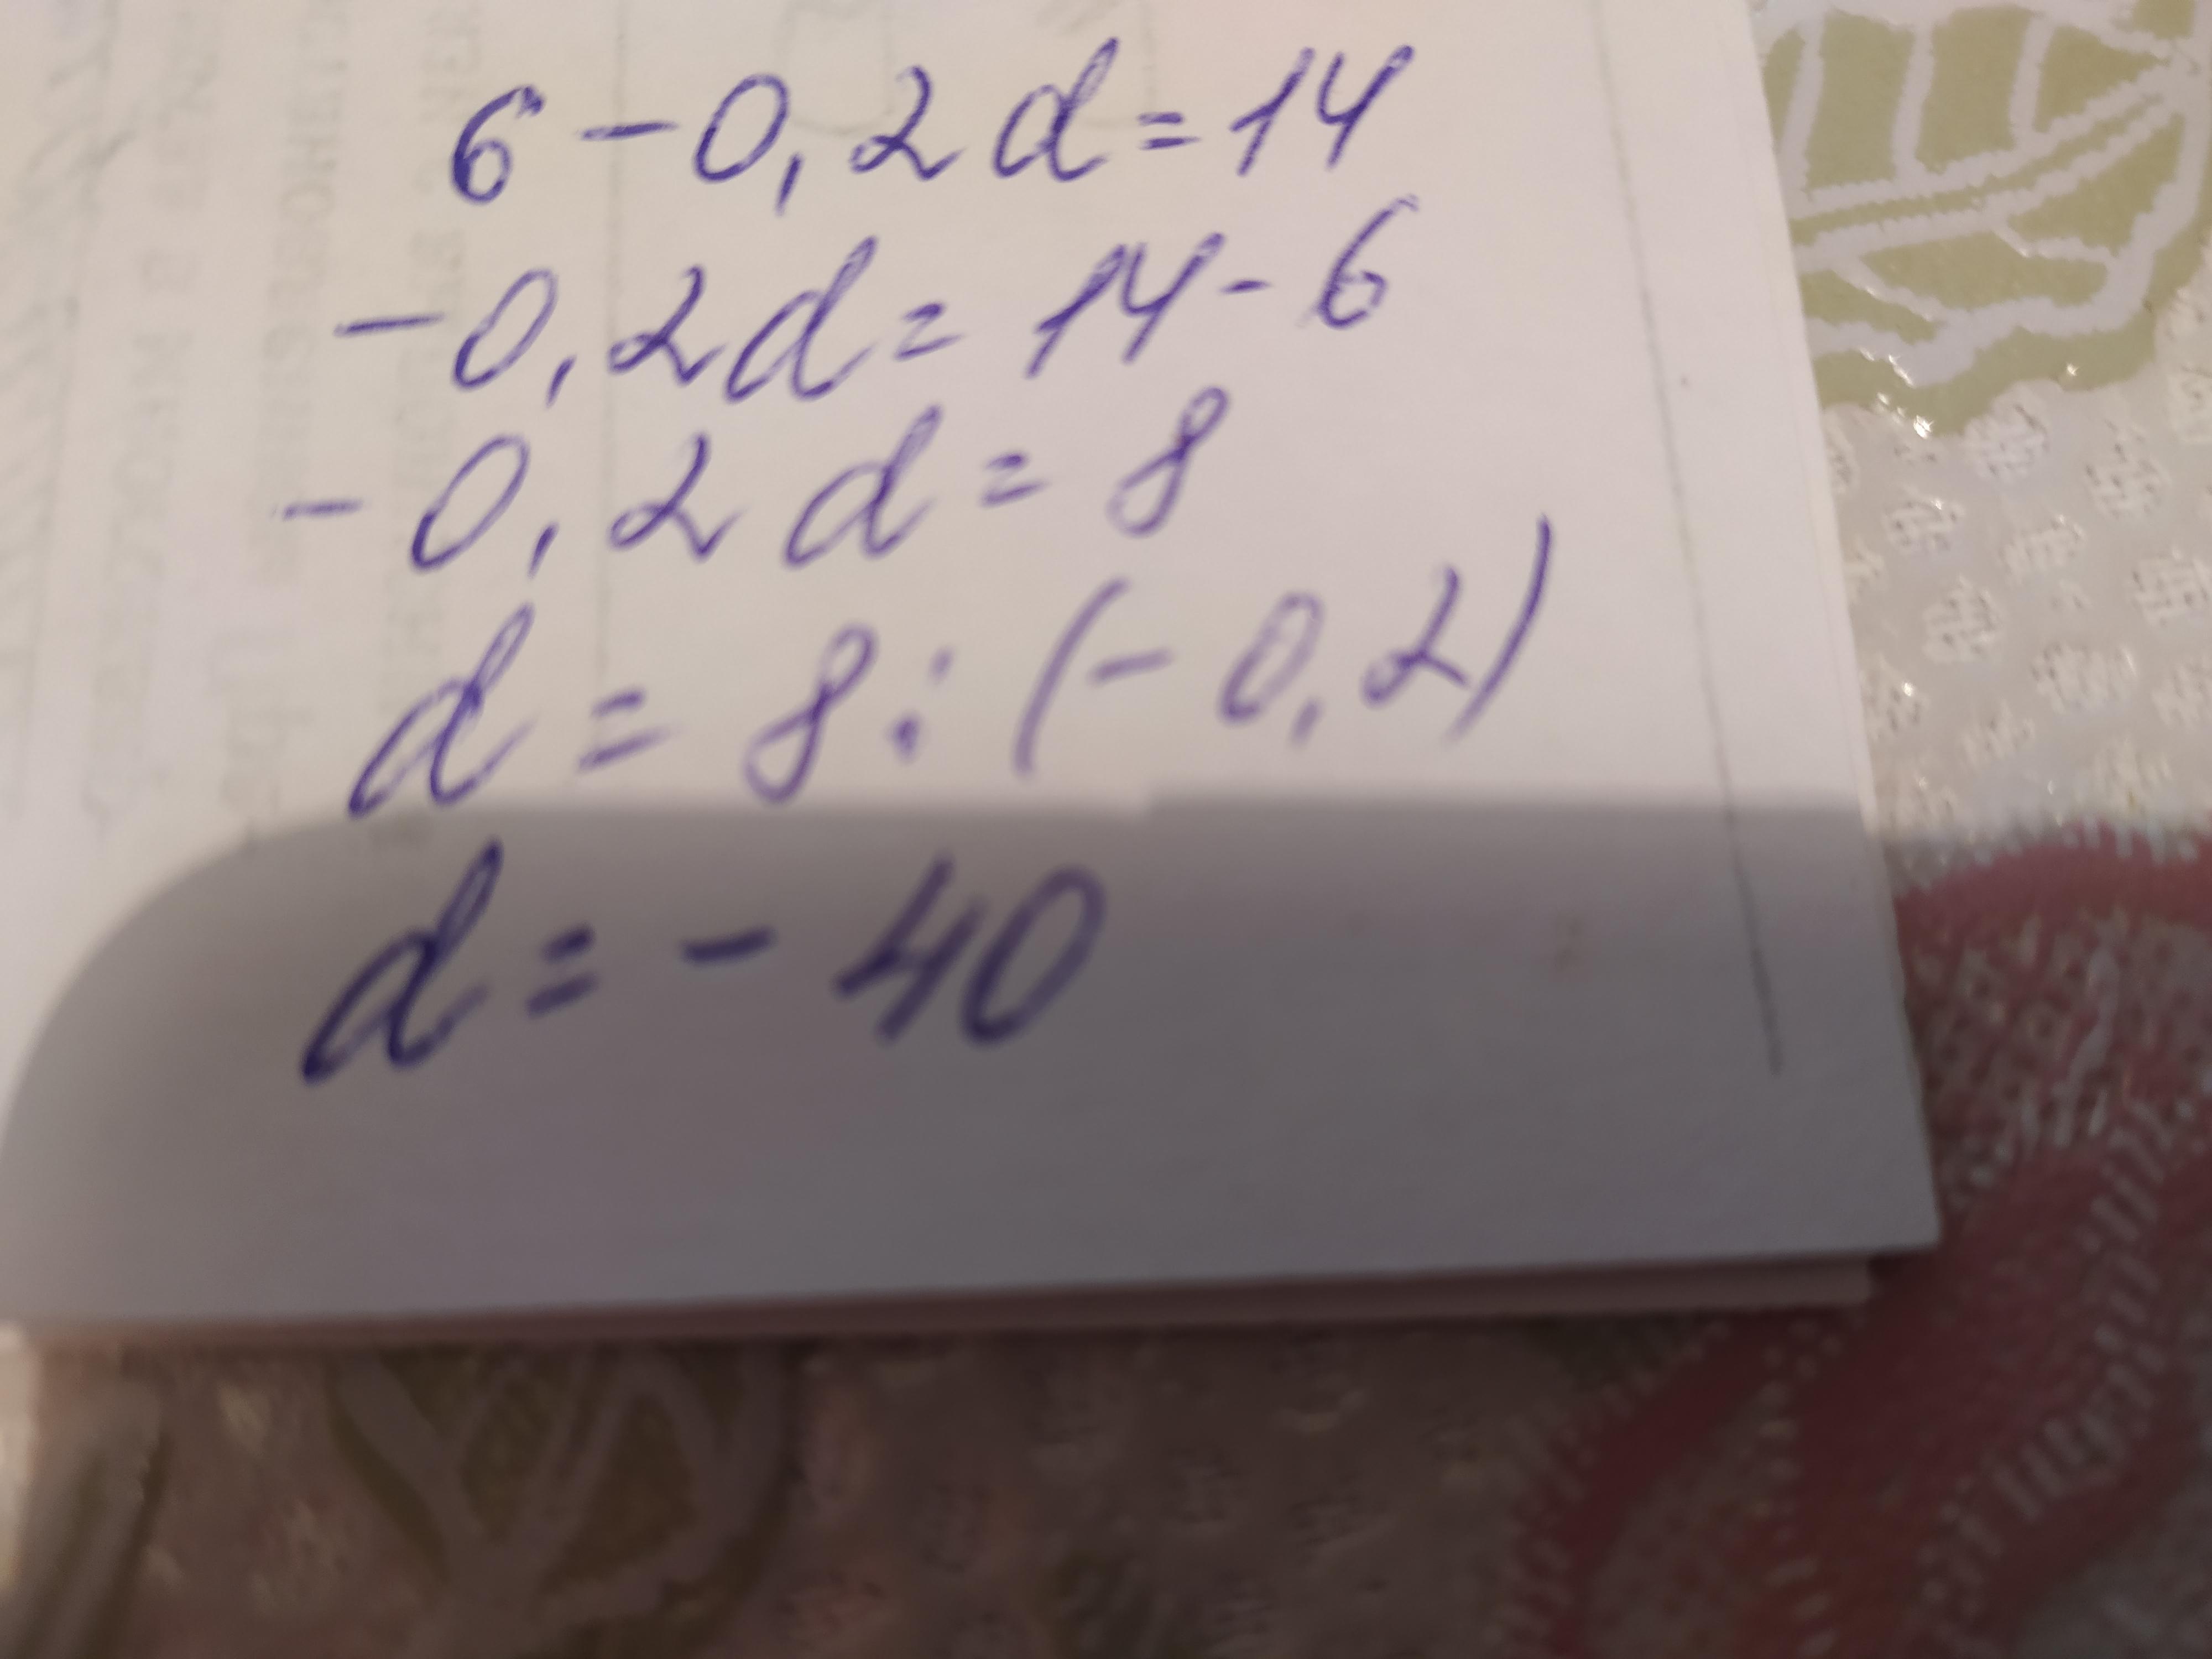 6 - 0,2d = 14
- 0,2d = 14 - 6
- 0,2d = 8
d = 8 : (- 0,2)
d = - 40